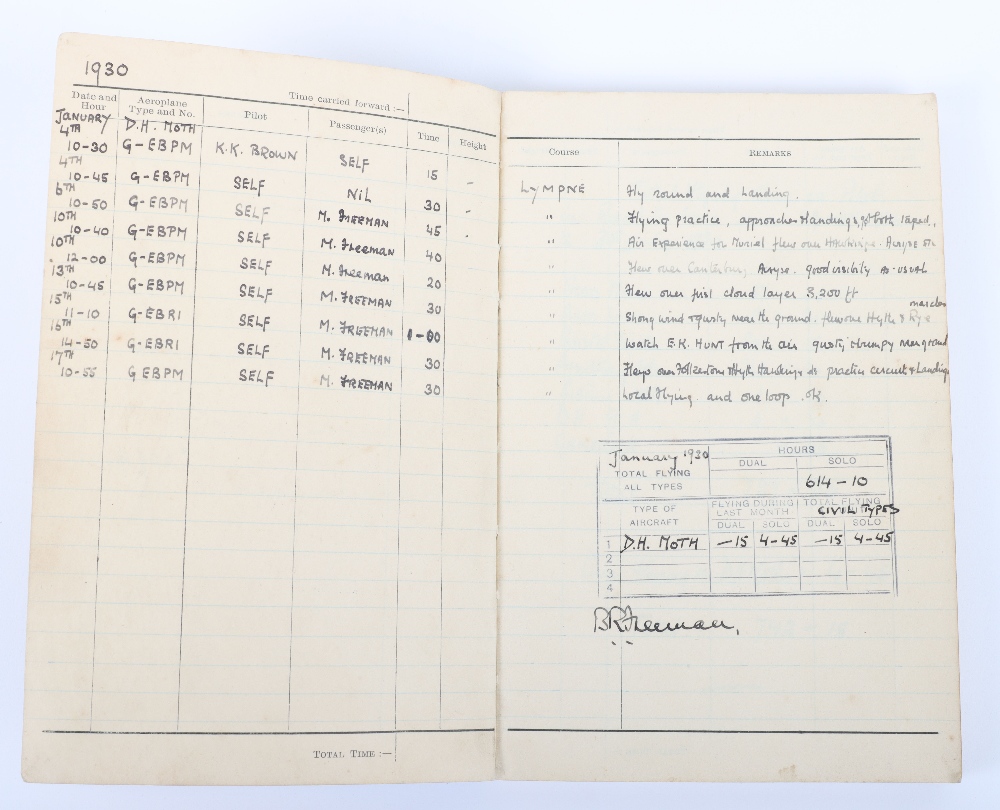 1930
Time carried forward :—
Date and Hour Aeroplane Type and No. Pilot Passenger(s) Time Height
JANUARY D.H. MOTH
4TH 10-30 G-EBPM K.K. BROWN SELF 15 -
4TH 10-45 G-EBPM SELF NIL 30 -
6TH 10-50 G-EBPM SELF M. FREEMAN 45 -
10TH 10-40 G-EBPM SELF M. Freeman 40
10TH 12-00 G-EBPM SELF M. Freeman 20
13TH 10-45 G-EBPM SELF M. FREEMAN 30
15TH 11-10 G-EBRI SELF M. FREEMAN 1-00
16TH 14-50 G-EBRI SELF M. FREEMAN 30
17TH 10-55 G EBPM SELF M. FREEMAN 30
TOTAL TIME :—
Course REMARKS
LYMPNE Fly round and Landing.
" Flying practice, approaches & landings,
" Air Experience for Muriel flew over Hawkinge.
" Flew over Canterbury, good visibility AS-USUAL
" Flew over first cloud layer 3,200 ft
marshes
" Strong wind & gusty near the ground. flew over Hythe & Rye
" Watch E.K. HUNT from the air gusty & bumpy near ground
" over Folkestone & Hythe Hawkinge practice circuit & Landings
" Local Flying. and one loop. ok.
January 1930 HOURS
TOTAL FLYING ALL TYPES DUAL SOLO
614-10
TYPE OF AIRCRAFT FLYING DURING LAST MONTH TOTAL FLYING CIVIL TYPES
DUAL SOLO DUAL SOLO
1 D.H. MOTH -15 4-45 -15 4-45
2
3
4
BRFreeman.